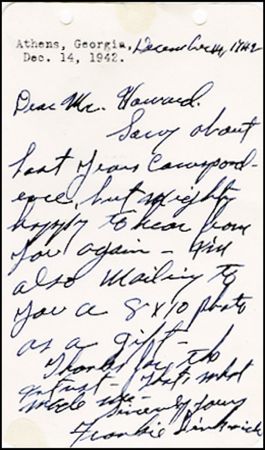 Athens, Georgia, December 14, 1942
Dec. 14, 1942.
Dear Mr. Howard.
Sorry about
last years correspond-
ence, but mighty
happy to hear from
you again - I'm
also mailing to
you a 8 x 10 photo
as a gift -
Thanks for the
interest - that's what
made me -
Sincerely yours
Frankie Sinkwich